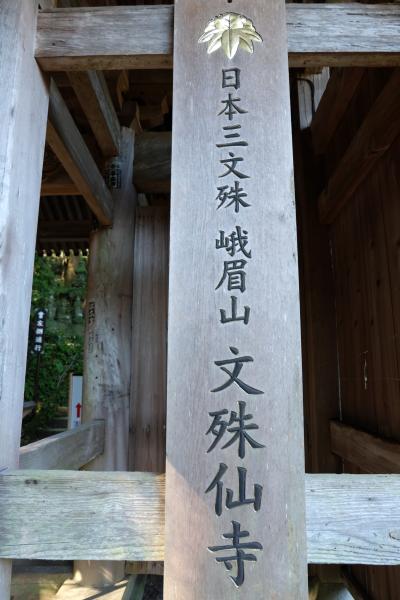 日本三文殊 峨眉山 文殊仙寺